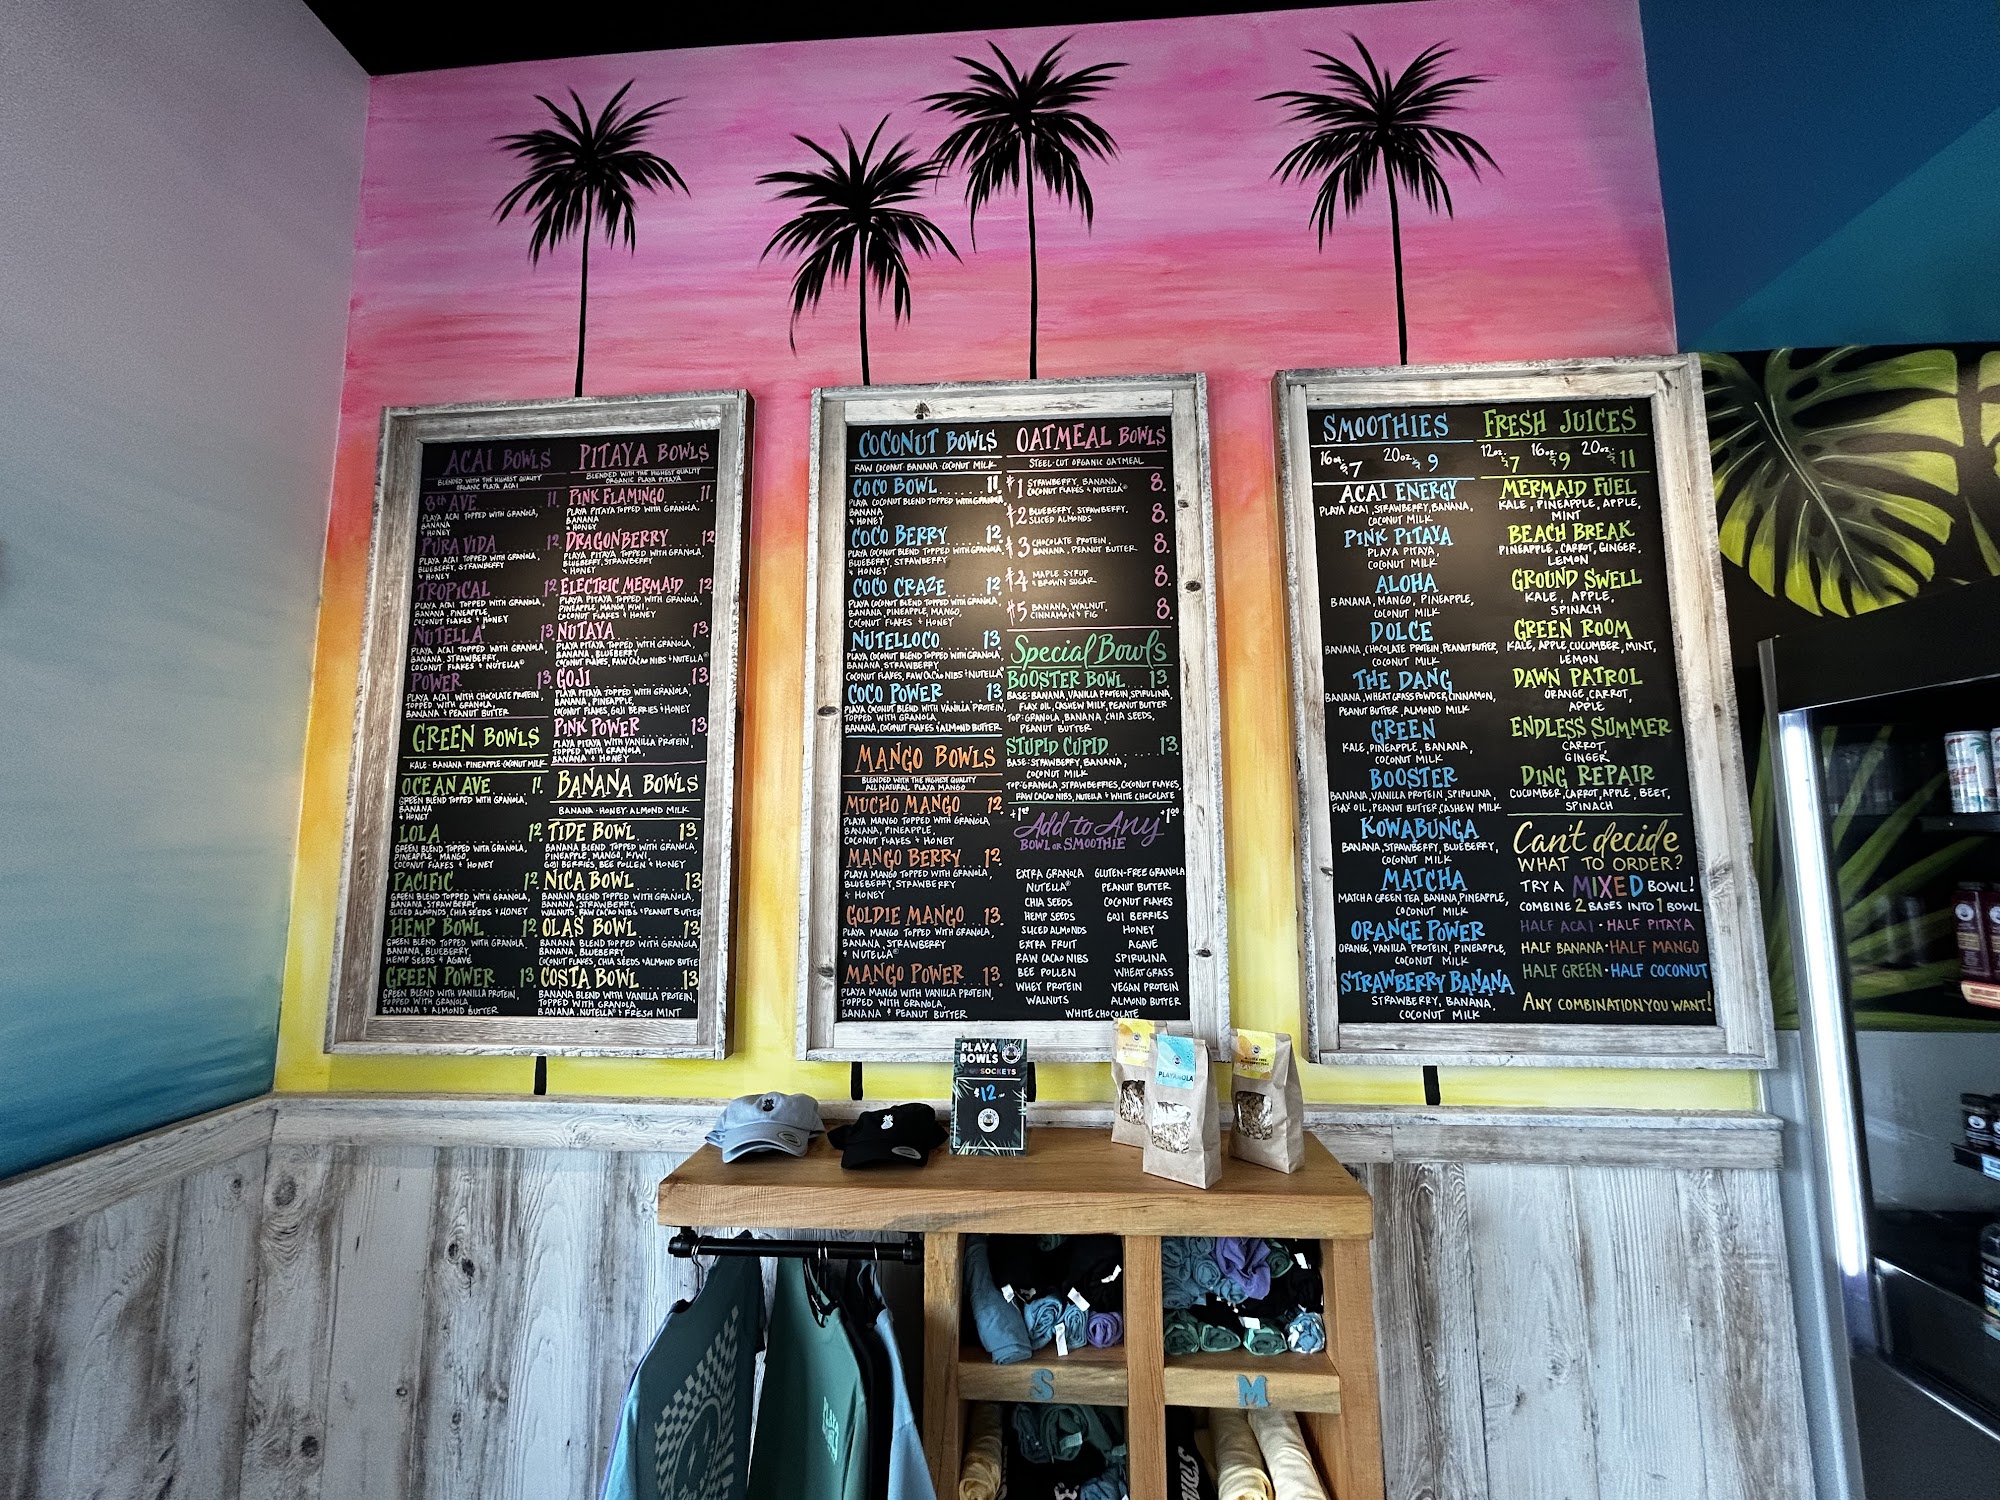 ACAI BOWLS
BLENDED WITH THE HIGHEST QUALITY
ORGANIC PLAYA ACAI
8th AVE 11.
PLAYA ACAI TOPPED WITH GRANOLA,
BANANA
+ HONEY
PURA VIDA 12.
PLAYA ACAI TOPPED WITH GRANOLA,
BLUEBERRY, STRAWBERRY
+ HONEY
TROPICAL 12.
PLAYA ACAI TOPPED WITH GRANOLA,
BANANA, PINEAPPLE,
COCONUT FLAKES + HONEY
NUTELLA 13.
PLAYA ACAI TOPPED WITH GRANOLA,
BANANA, STRAWBERRY,
COCONUT FLAKES + NUTELLA®
POWER 13.
PLAYA ACAI WITH CHOCOLATE PROTEIN,
TOPPED WITH GRANOLA,
BANANA + PEANUT BUTTER
GREEN BOWLS
KALE · BANANA · PINEAPPLE · COCONUT MILK
OCEAN AVE 11.
GREEN BLEND TOPPED WITH GRANOLA,
BANANA
+ HONEY
LOLA 12.
GREEN BLEND TOPPED WITH GRANOLA,
PINEAPPLE, MANGO,
COCONUT FLAKES + HONEY
PACIFIC 12.
GREEN BLEND TOPPED WITH GRANOLA,
BANANA, STRAWBERRY,
SLICED ALMONDS, CHIA SEEDS + HONEY
HEMP BOWL 12.
GREEN BLEND TOPPED WITH GRANOLA,
BANANA, BLUEBERRY
HEMP SEEDS + AGAVE
GREEN POWER 13.
GREEN BLEND WITH VANILLA PROTEIN,
TOPPED WITH GRANOLA
BANANA + ALMOND BUTTER
PITAYA BOWLS
BLENDED WITH THE HIGHEST QUALITY
ORGANIC PLAYA PITAYA
PINK FLAMINGO 11.
PLAYA PITAYA TOPPED WITH GRANOLA,
BANANA
+ HONEY
DRAGONBERRY 12
PLAYA PITAYA TOPPED WITH GRANOLA,
BLUEBERRY, STRAWBERRY
+ HONEY
ELECTRIC MERMAID 12
PLAYA PITAYA TOPPED WITH GRANOLA,
PINEAPPLE, MANGO, KIWI,
COCONUT FLAKES + HONEY
NUTAYA 13.
PLAYA PITAYA TOPPED WITH GRANOLA,
BANANA, BLUEBERRY
COCONUT FLAKES, RAW CACAO NIBS + NUTELLA®
GOJI 13.
PLAYA PITAYA TOPPED WITH GRANOLA,
BANANA, PINEAPPLE,
COCONUT FLAKES, GOJI BERRIES + HONEY
PINK POWER 13.
PLAYA PITAYA WITH VANILLA PROTEIN,
TOPPED WITH GRANOLA,
BANANA + HONEY
BANANA BOWLS
BANANA · HONEY · ALMOND MILK
TIDE BOWL 13.
BANANA BLEND TOPPED WITH GRANOLA,
PINEAPPLE, MANGO, KIWI,
GOJI BERRIES, BEE POLLEN + HONEY
NICA BOWL 13.
BANANA BLEND TOPPED WITH GRANOLA,
BANANA, STRAWBERRY,
WALNUTS, RAW CACAO NIBS + PEANUT BUTTER
OLAS BOWL 13.
BANANA BLEND TOPPED WITH GRANOLA,
BANANA, BLUEBERRY
COCONUT FLAKES, CHIA SEEDS + ALMOND BUTTER
COSTA BOWL 13.
BANANA BLEND WITH VANILLA PROTEIN,
TOPPED WITH GRANOLA
BANANA, NUTELLA® + FRESH MINT
COCONUT BOWLS
RAW COCONUT · BANANA · COCONUT MILK
COCO BOWL 11.
PLAYA COCONUT BLEND TOPPED WITH GRANOLA,
BANANA
+ HONEY
COCO BERRY 12.
PLAYA COCONUT BLEND TOPPED WITH GRANOLA,
BLUEBERRY, STRAWBERRY
+ HONEY
COCO CRAZE 12.
PLAYA COCONUT BLEND TOPPED WITH GRANOLA,
BANANA, PINEAPPLE, MANGO,
COCONUT FLAKES + HONEY
NUTELLOCO 13.
PLAYA COCONUT BLEND TOPPED WITH GRANOLA,
BANANA, STRAWBERRY
COCONUT FLAKES, RAW CACAO NIBS + NUTELLA®
COCO POWER 13.
PLAYA COCONUT BLEND WITH VANILLA PROTEIN,
TOPPED WITH GRANOLA
BANANA, COCONUT FLAKES + ALMOND BUTTER
MANGO BOWLS
BLENDED WITH THE HIGHEST QUALITY
ALL NATURAL PLAYA MANGO
MUCHO MANGO 12.
PLAYA MANGO TOPPED WITH GRANOLA,
BANANA, PINEAPPLE,
COCONUT FLAKES + HONEY
MANGO BERRY 12.
PLAYA MANGO TOPPED WITH GRANOLA,
BLUEBERRY, STRAWBERRY
+ HONEY
GOLDIE MANGO 13.
PLAYA MANGO TOPPED WITH GRANOLA,
BANANA, STRAWBERRY
+ NUTELLA®
MANGO POWER 13.
PLAYA MANGO WITH VANILLA PROTEIN,
TOPPED WITH GRANOLA,
BANANA + PEANUT BUTTER
OATMEAL BOWLS
STEEL-CUT ORGANIC OATMEAL
#1 STRAWBERRY, BANANA, 8.
COCONUT FLAKES + NUTELLA®
#2 BLUEBERRY, STRAWBERRY, 8.
SLICED ALMONDS
#3 CHOCOLATE PROTEIN, 8.
BANANA, PEANUT BUTTER
#4 MAPLE SYRUP 8.
+ BROWN SUGAR
#5 BANANA, WALNUT, 8.
CINNAMON + FIG
Special Bowls
BOOSTER BOWL 13
BASE: BANANA, VANILLA PROTEIN, SPIRULINA,
FLAX OIL, CASHEW MILK, PEANUT BUTTER
TOP: GRANOLA, BANANA, CHIA SEEDS,
PEANUT BUTTER
STUPID CUPID 13.
BASE: STRAWBERRY, BANANA,
COCONUT MILK
TOP: GRANOLA, STRAWBERRIES, COCONUT FLAKES,
RAW CACAO NIBS, NUTELLA + WHITE CHOCOLATE
+1.00 Add to Any +1.00
BOWL OR SMOOTHIE
EXTRA GRANOLA GLUTEN-FREE GRANOLA
NUTELLA® PEANUT BUTTER
CHIA SEEDS COCONUT FLAKES
HEMP SEEDS GOJI BERRIES
SLICED ALMONDS HONEY
EXTRA FRUIT AGAVE
RAW CACAO NIBS SPIRULINA
BEE POLLEN WHEATGRASS
WHEY PROTEIN VEGAN PROTEIN
WALNUTS ALMOND BUTTER
WHITE CHOCOLATE
SMOOTHIES
16oz $7 20oz $9
ACAI ENERGY
PLAYA ACAI, STRAWBERRY, BANANA,
COCONUT MILK
PINK PITAYA
PLAYA PITAYA,
COCONUT MILK
ALOHA
BANANA, MANGO, PINEAPPLE,
COCONUT MILK
DOLCE
BANANA, CHOCOLATE PROTEIN, PEANUT BUTTER,
COCONUT MILK
THE DANG
BANANA, WHEATGRASS POWDER, CINNAMON,
PEANUT BUTTER, ALMOND MILK
GREEN
KALE, PINEAPPLE, BANANA,
COCONUT MILK
BOOSTER
BANANA, VANILLA PROTEIN, SPIRULINA,
FLAX OIL, PEANUT BUTTER, CASHEW MILK
KOWABUNGA
BANANA, STRAWBERRY, BLUEBERRY,
COCONUT MILK
MATCHA
MATCHA GREEN TEA, BANANA, PINEAPPLE,
COCONUT MILK
ORANGE POWER
ORANGE, VANILLA PROTEIN, PINEAPPLE,
COCONUT MILK
STRAWBERRY BANANA
STRAWBERRY, BANANA,
COCONUT MILK
FRESH JUICES
12oz $7 16oz $9 20oz $11
MERMAID FUEL
KALE, PINEAPPLE, APPLE,
MINT
BEACH BREAK
PINEAPPLE, CARROT, GINGER,
LEMON
GROUND SWELL
KALE, APPLE,
SPINACH
GREEN ROOM
KALE, APPLE, CUCUMBER, MINT,
LEMON
DAWN PATROL
ORANGE, CARROT,
APPLE
ENDLESS SUMMER
CARROT,
GINGER
DING REPAIR
CUCUMBER, CARROT, APPLE, BEET,
SPINACH
Can't decide
WHAT TO ORDER?
TRY A MIXED BOWL!
COMBINE 2 BASES INTO 1 BOWL
HALF ACAI · HALF PITAYA
HALF BANANA · HALF MANGO
HALF GREEN · HALF COCONUT
ANY COMBINATION YOU WANT!
PLAYA
BOWLS
POPSOCKETS
$12
PLAYANOLA
S
M